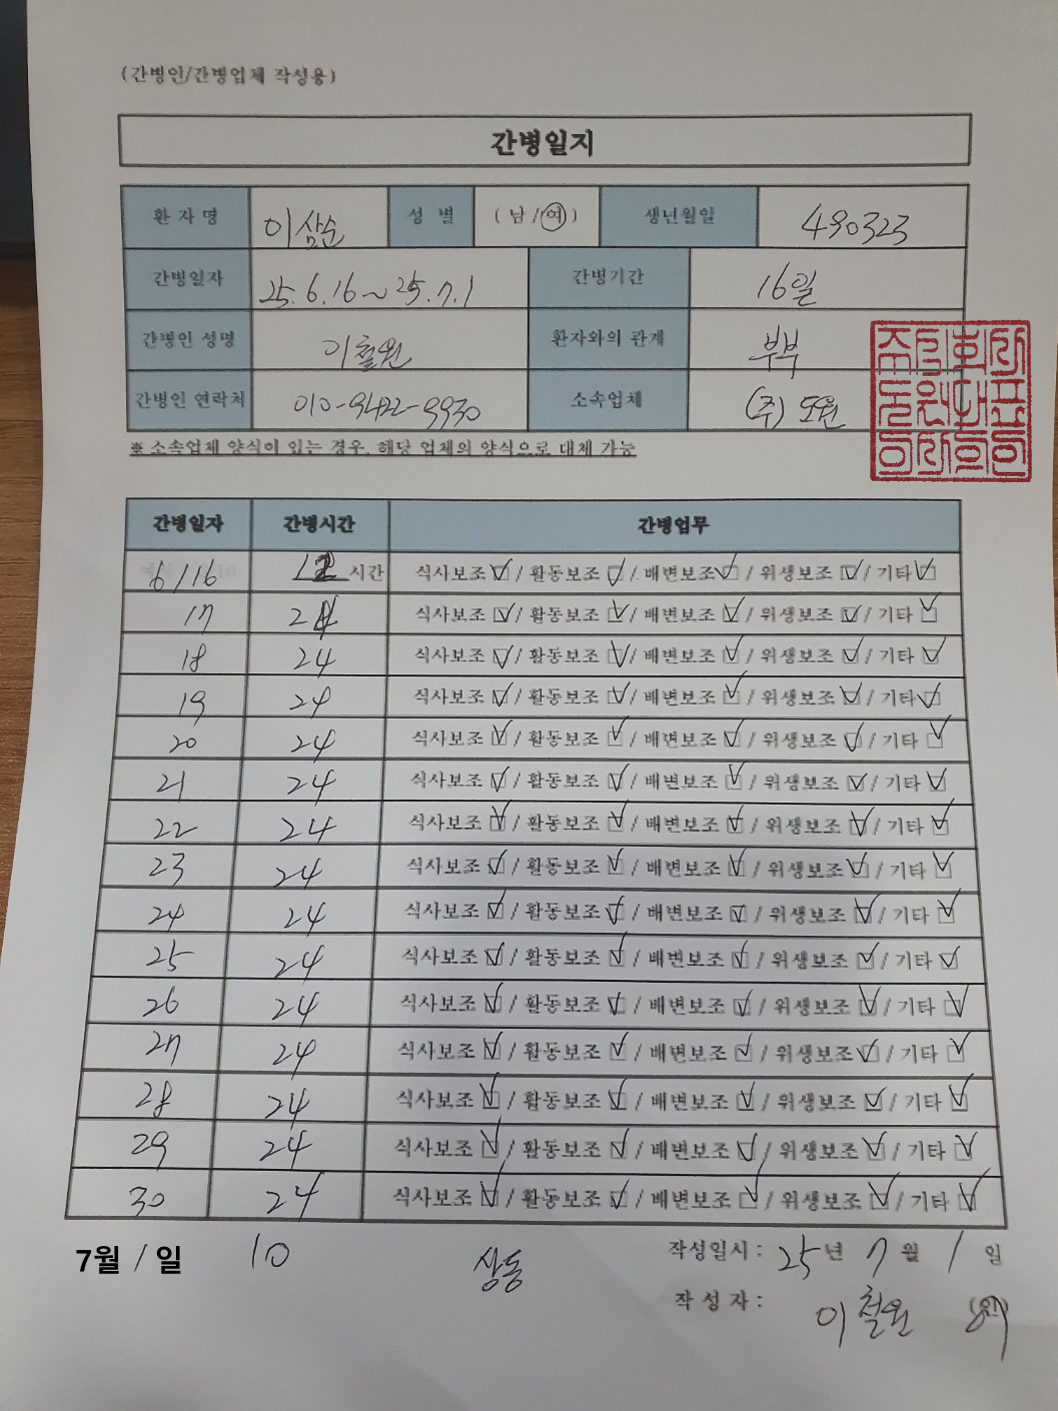 (간병인/간병업체 작성용)
간병일지
환 자 명 이삼순 성 별 ( 남 / 여 ) 생년월일 490323
간병일자 25.6.16~25.7.1 간병기간 16일
간병인 성명 이철원 환자와의 관계 부부
간병인 연락처 010-9422-9930 소속업체 (주) 도원
※ 소속업체 양식이 있는 경우, 해당 업체의 양식으로 대체 가능
간병일자 간병시간 간병업무
6/16 12 시간 식사보조 ☑ / 활동보조 ☑ / 배변보조 ☑ / 위생보조 ☑ / 기타 ☑
17 24 식사보조 ☑ / 활동보조 ☑ / 배변보조 ☑ / 위생보조 ☑ / 기타 ☑
18 24 식사보조 ☑ / 활동보조 ☑ / 배변보조 ☑ / 위생보조 ☑ / 기타 ☑
19 24 식사보조 ☑ / 활동보조 ☑ / 배변보조 ☑ / 위생보조 ☑ / 기타 ☑
20 24 식사보조 ☑ / 활동보조 ☑ / 배변보조 ☑ / 위생보조 ☑ / 기타 ☑
21 24 식사보조 ☑ / 활동보조 ☑ / 배변보조 ☑ / 위생보조 ☑ / 기타 ☑
22 24 식사보조 ☑ / 활동보조 ☑ / 배변보조 ☑ / 위생보조 ☑ / 기타 ☑
23 24 식사보조 ☑ / 활동보조 ☑ / 배변보조 ☑ / 위생보조 ☑ / 기타 ☑
24 24 식사보조 ☑ / 활동보조 ☑ / 배변보조 ☑ / 위생보조 ☑ / 기타 ☑
25 24 식사보조 ☑ / 활동보조 ☑ / 배변보조 ☑ / 위생보조 ☑ / 기타 ☑
26 24 식사보조 ☑ / 활동보조 ☑ / 배변보조 ☑ / 위생보조 ☑ / 기타 ☑
27 24 식사보조 ☑ / 활동보조 ☑ / 배변보조 ☑ / 위생보조 ☑ / 기타 ☑
28 24 식사보조 ☑ / 활동보조 ☑ / 배변보조 ☑ / 위생보조 ☑ / 기타 ☑
29 24 식사보조 ☑ / 활동보조 ☑ / 배변보조 ☑ / 위생보조 ☑ / 기타 ☑
30 24 식사보조 ☑ / 활동보조 ☑ / 배변보조 ☑ / 위생보조 ☑ / 기타 ☑
7월 1일 10 상동 작성일시 : 25년 7월 1일
작 성 자 : 이철원 (인)